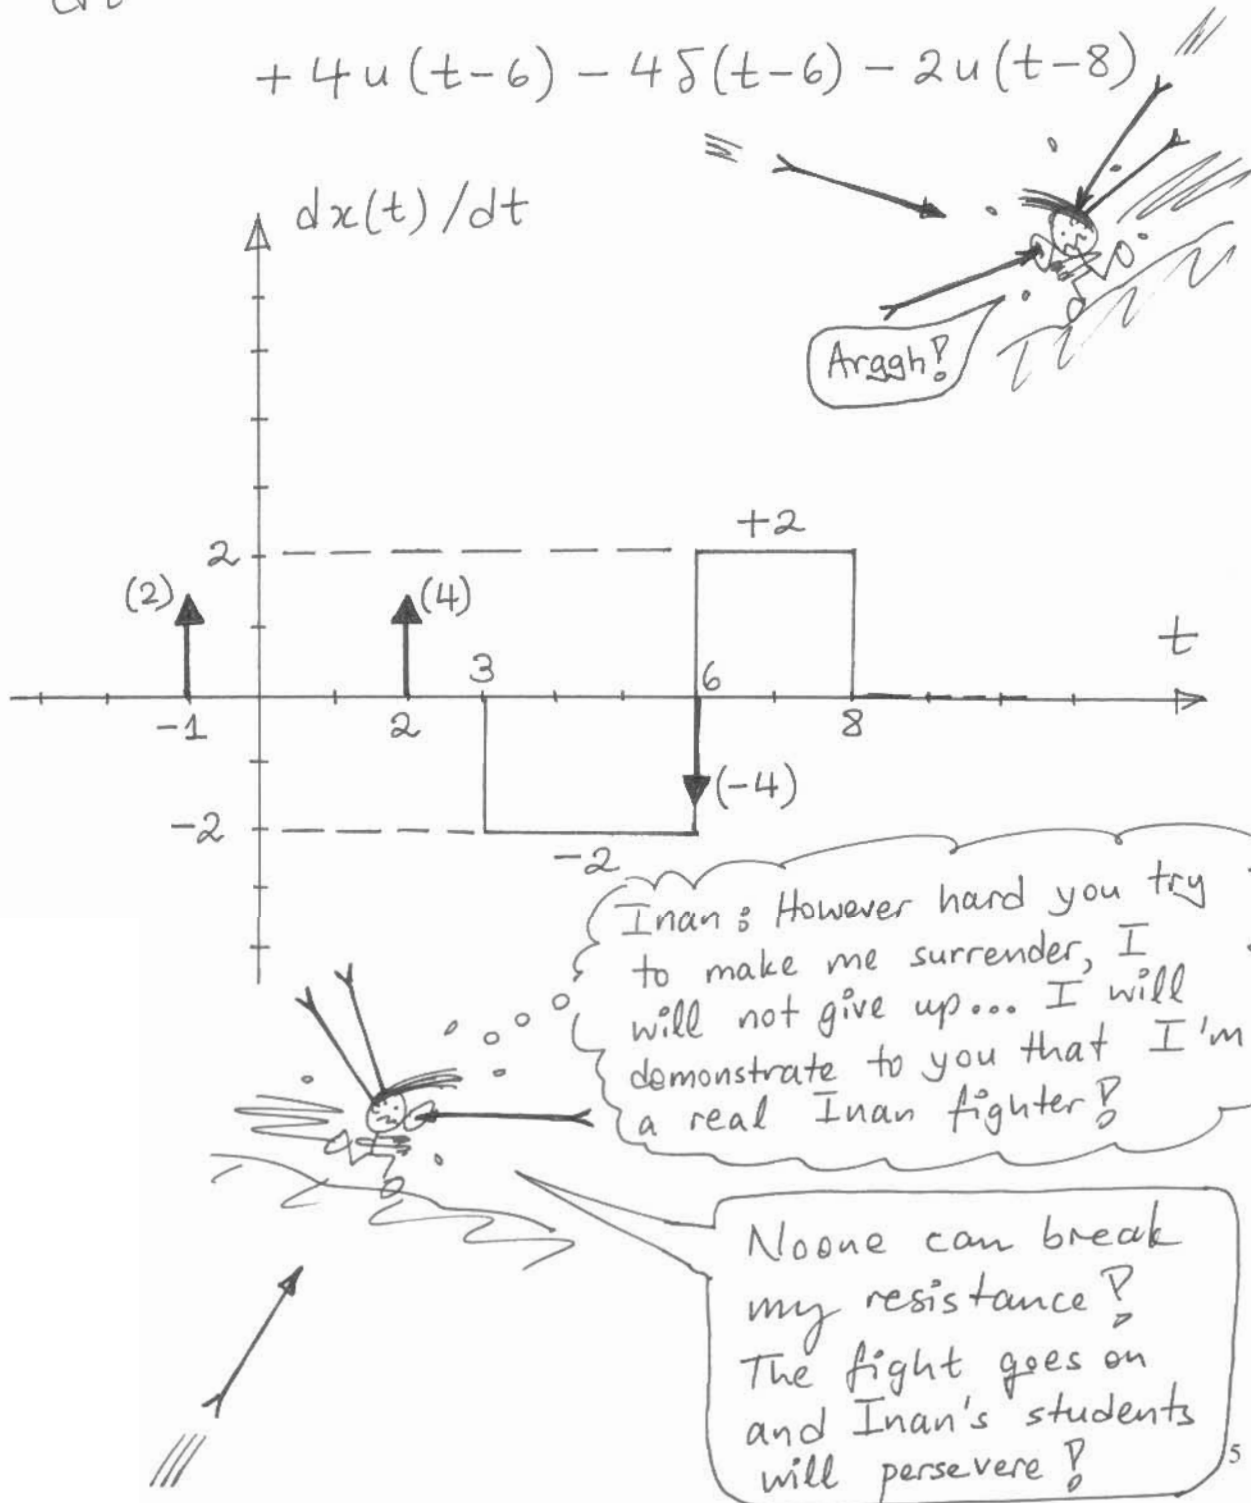 + 4u(t-6) - 4δ(t-6) - 2u(t-8)
dx(t)/dt
Arggh!
+2
2
(2)
(4)
t
3
6
-1
2
8
(-4)
-2
-2
Inan: However hard you try
to make me surrender, I
will not give up... I will
demonstrate to you that I'm
a real Inan fighter!
Noone can break
my resistance!
The fight goes on
and Inan's students
will persevere!
5